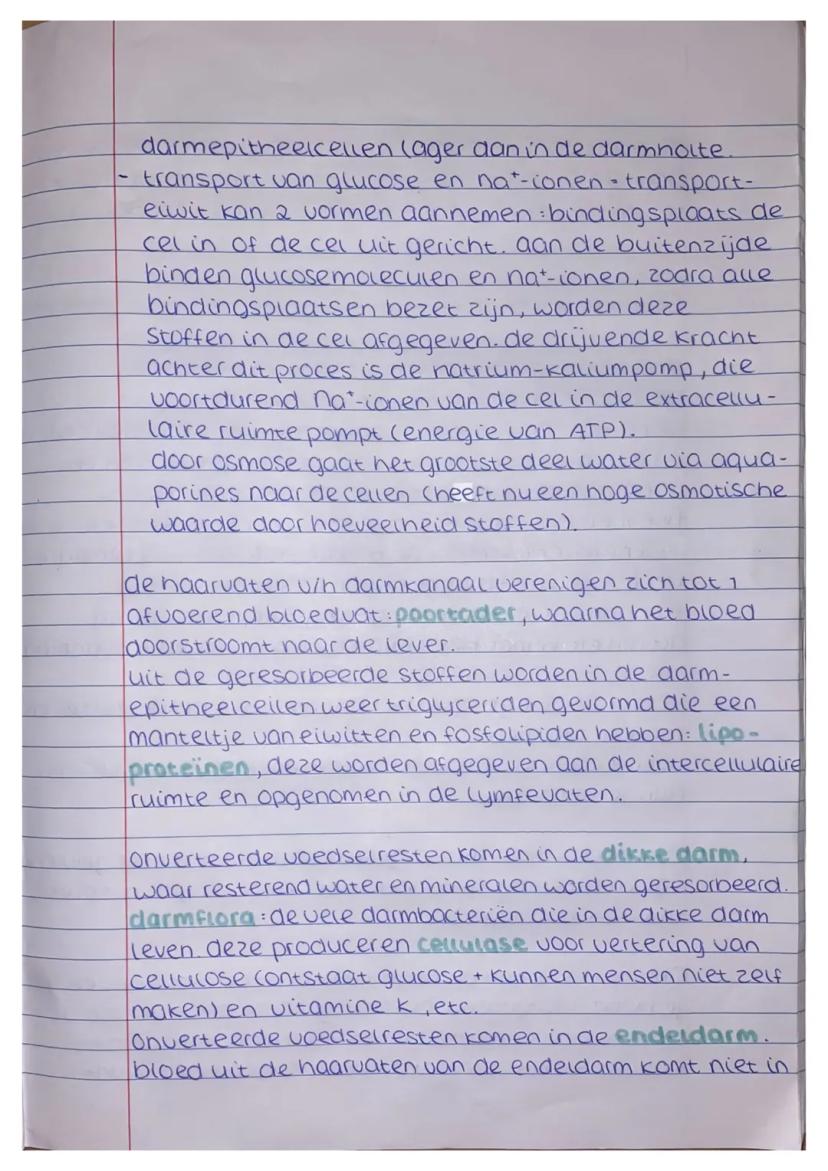 darmepitheelcellen lager dan in de darmholte.
- transport van glucose en na⁺-ionen - transport-
eiwit kan 2 vormen aannemen : bindingsplaats de
cel in of de cel uit gericht. aan de buitenzijde
binden glucosemoleculen en na⁺-ionen, zodra alle
bindingsplaatsen bezet zijn, worden deze
stoffen in de cel afgegeven. de drijvende kracht
achter dit proces is de natrium-kaliumpomp, die
voortdurend na⁺-ionen van de cel in de extracellu-
laire ruimte pompt (energie van ATP).
door osmose gaat het grootste deel water via aqua-
porines naar de cellen (heeft nu een hoge osmotische
waarde door hoeveelheid stoffen).
de haarvaten v/h darmkanaal verenigen zich tot 1
afvoerend bloedvat : poortader, waarna het bloed
doorstroomt naar de lever.
uit de geresorbeerde stoffen worden in de darm-
epitheelcellen weer triglyceriden gevormd die een
manteltje van eiwitten en fosfolipiden hebben: lipo-
proteïnen, deze worden afgegeven aan de intercellulaire
ruimte en opgenomen in de lymfevaten.
onverteerde voedselresten komen in de dikke darm,
waar resterend water en mineralen worden geresorbeerd.
darmflora : de vele darmbacteriën die in de dikke darm
leven. deze produceren cellulase voor vertering van
cellulose (ontstaat glucose + kunnen mensen niet zelf
maken) en vitamine k, etc.
onverteerde voedselresten komen in de endeldarm.
bloed uit de haarvaten van de endeldarm komt niet in